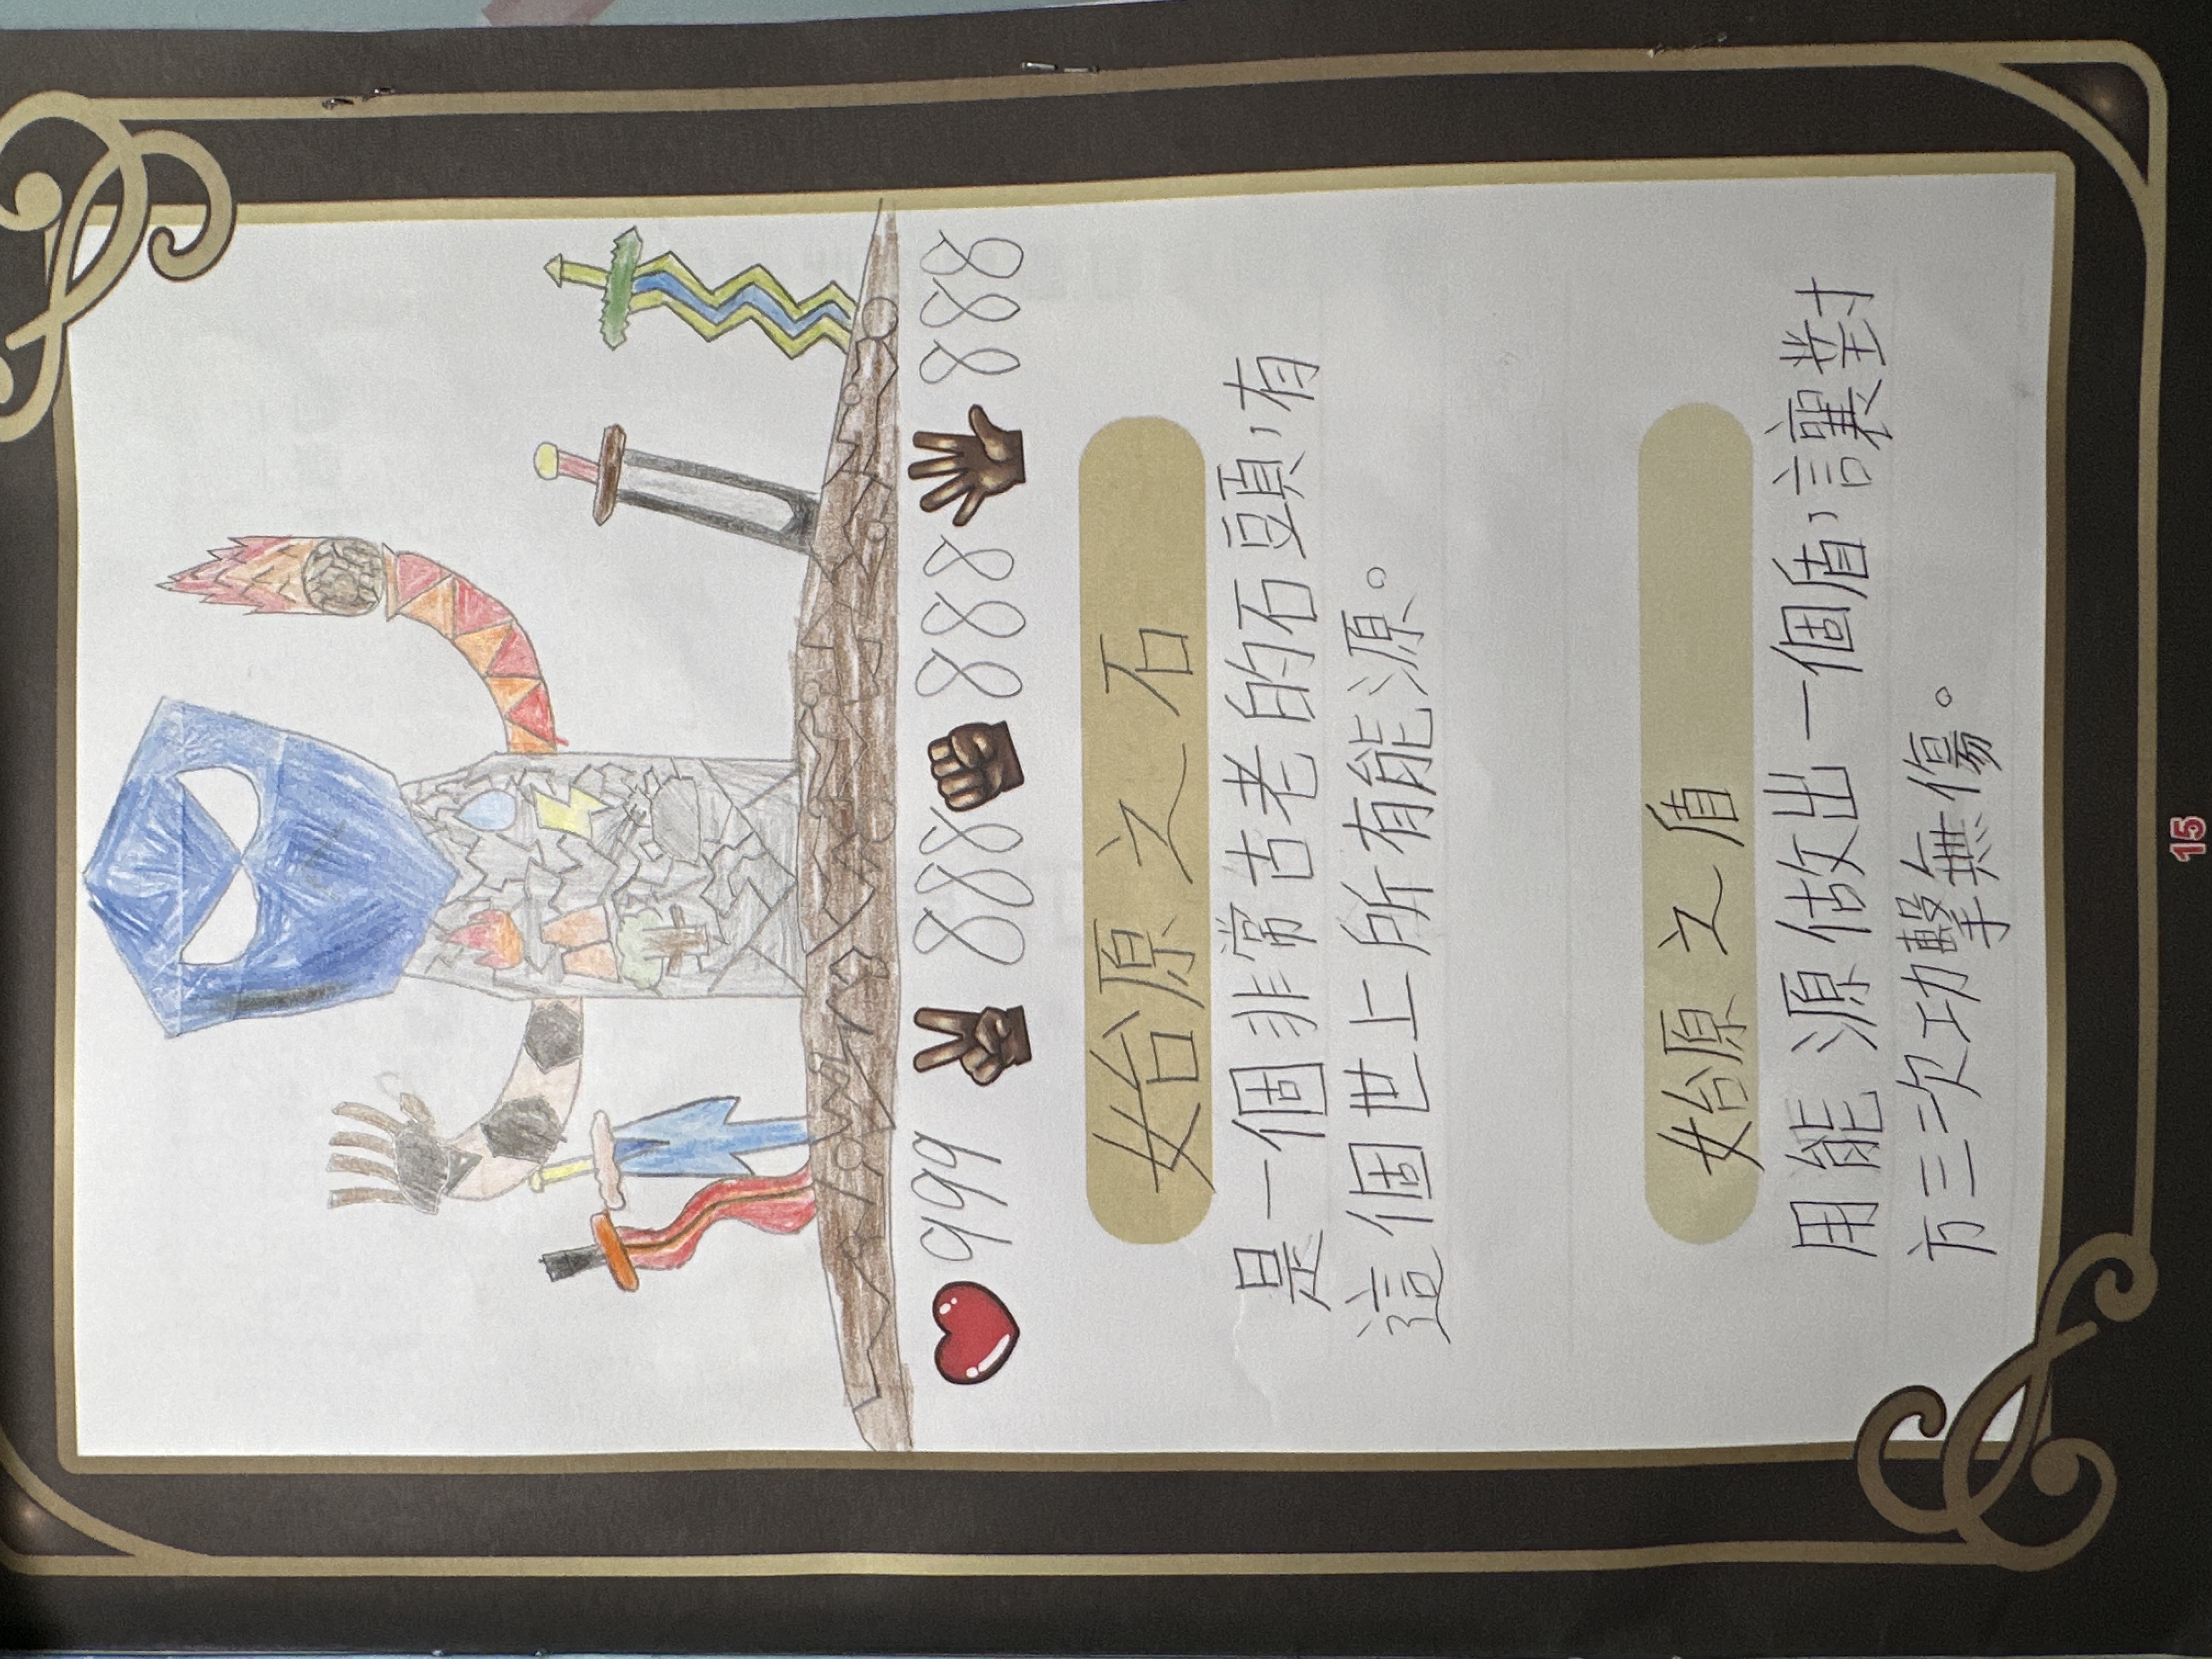 999 888 888 888
始原之石
是一個非常古老的石頭,有
這個世上所有能源。
始原之盾
用能源做出一個盾,讓對
方三次功擊無傷。
15